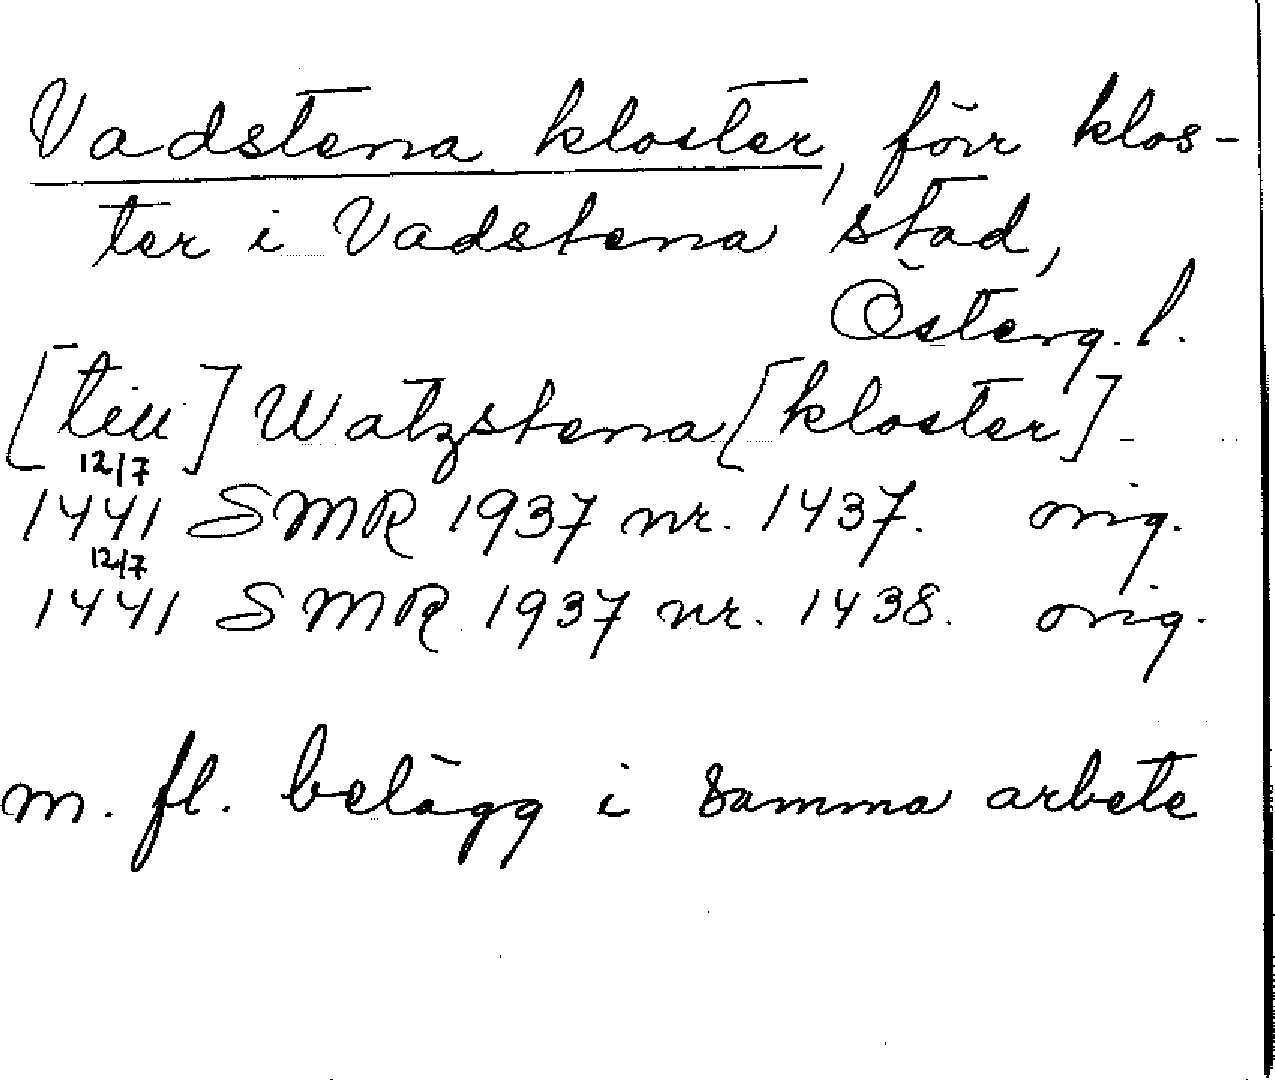 Vadstena kloster, förr klos-
ter i Vadstena stad,
Österg. l.
[till] Watzstena [kloster]
12/7
1441 SMR 1937 nr. 1437. orig.
12/7
1441 SMR 1937 nr. 1438. orig.
m. fl. belägg i samma arbete